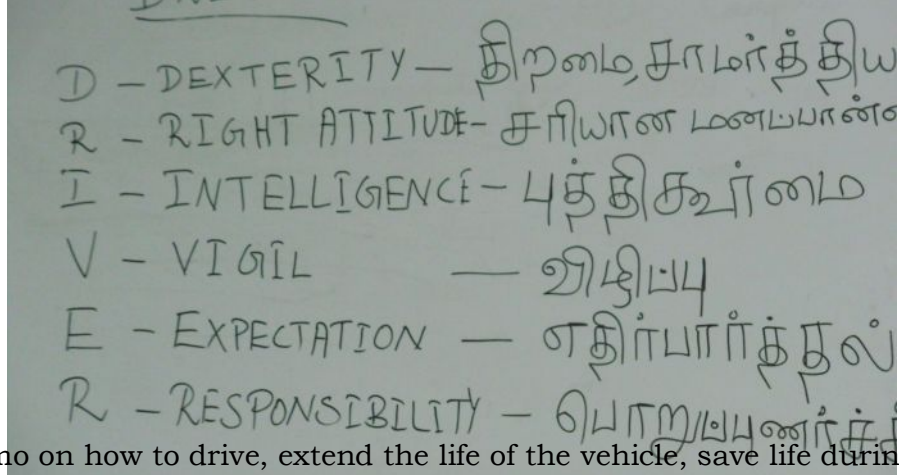 D - DEXTERITY - திறமை, சாமர்த்திய
R - RIGHT ATTITUDE - சரியான மனப்பான்
I - INTELLIGENCE - புத்திகூர்மை
V - VIGIL - விழிப்பு
E - EXPECTATION - எதிர்பார்த்தல்
R - RESPONSIBILITY - பொறுப்புணர்ச்
on how to drive, extend the life of the vehicle, save life